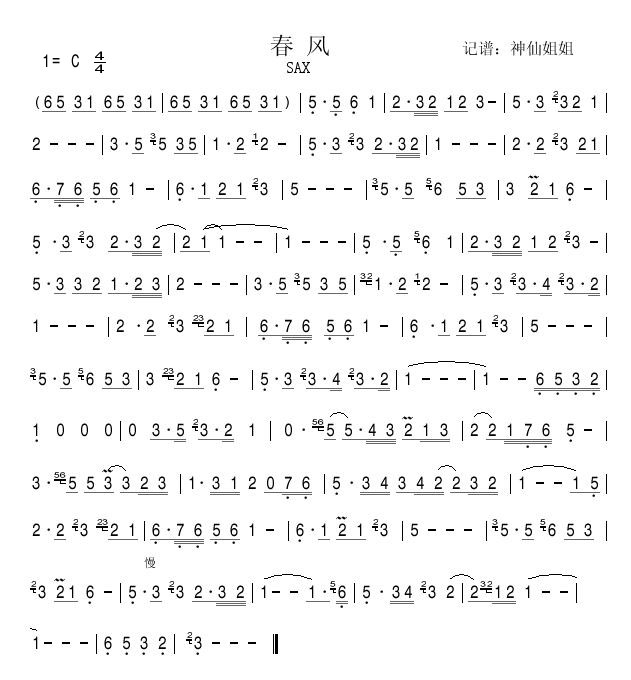 春风
1= C 4/4
SAX
记谱：神仙姐姐
(65 31 65 31|65 31 65 31)|5·5 6 1|2·32 12 3-|5·3 232 1|
2---|3·5 35 35|1·2 12-|5·3 23 2·32|1---|2·2 23 21|
6·76 56 1-|6·1 21 23|5---|35·5 56 53|3 21 6-|
5·3 23 2·32|21 1--|1---|5·5 56 1|2·32 12 23-|
5·3 32 1·23|2---|3·5 35 35|321·2 12-|5·3 23·4 23·2|
1---|2·2 23 2321|6·76 56 1-|6·121 23|5---|
35·5 56 53|3 2321 6-|5·3 23·4 23·2|1---|1--6532|
1 0 0 0|0 3·5 23·2 1|0·565 5·43 213|22 176 5-|
3·565 53 323|1·31 2 076|5·34 342 232|1--15|
2·2 23 2321|6·76 56 1-|6·1 21 23|5---|35·5 56 53|
慢
23 21 6-|5·3 23 2·32|1--1·56|5·34 23 2|23212 1--|
1---|6532|23---‖